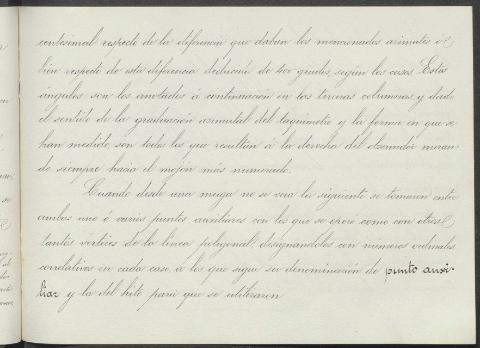 centesimal respecto de la diferencia que daban los mencionados azimutes ó
bien respecto de esta diferencia deducida de 400 grados, según los casos. Estos
ángulos son los anotados á continuación en las terceras columnas, y dado
el sentido de la graduación azimutal del taquímetro y la forma en que se
han medido, son todos los que resultan á la derecha del observador miran-
do siempre hacia el mojón más numerado.
Cuando desde una muga no se veía la siguiente se tomaron entre
ambas uno ó varios puntos auxiliares con los que se operó como con otros
tantos vértices de la línea poligonal, designándolos con números ordinales
correlativos en cada caso á los que sigue su denominación de punto auxi-
liar y la del hito para que se utilizaron